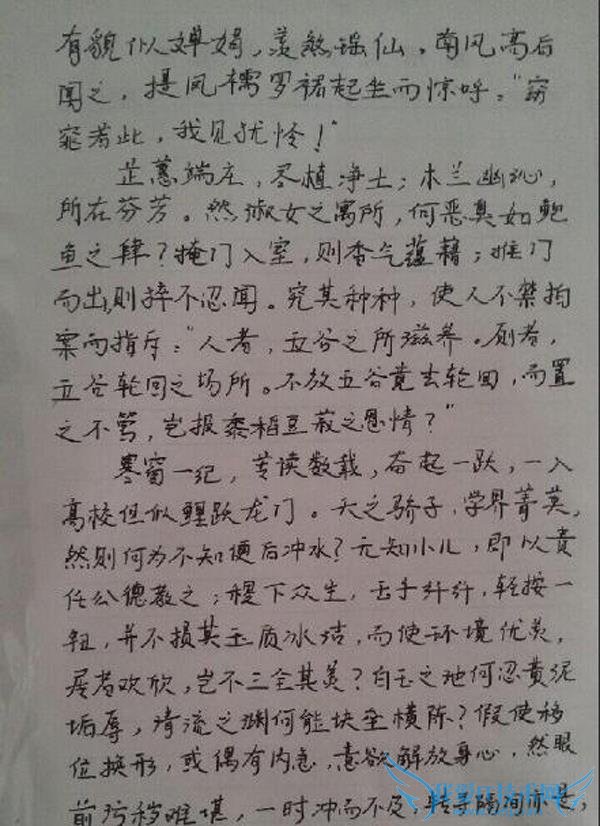 有貌似婵娟，羡煞瑶仙。南风高后
闻之，提凤襦罗裙起坐而惊呼：“窈
窕若此，我见犹怜！”
芷蕙端庄，尽植净土；木兰幽沁，
所在芬芳。然淑女之寓所，何恶臭如鲍
鱼之肆？掩门入室，则香气蕴藉；推门
而出，则捽不忍闻。究其种种，使人不禁拍
案而指斥：“人者，五谷之所滋养。厕者，
五谷轮回之场所。不放五谷竟去轮回，而置
之不管，岂报黍稻豆菽之恩情？”
寒窗一纪，苦读数载，奋起一跃，一入
高校但似鲤跃龙门。天之骄子，学界菁英，
然则何为不知便后冲水？无知小儿，即以责
任公德教之；稷下众生，玉手纤纤，轻按一
钮，并不损其玉质冰洁，而使环境优美，
居者欢欣，岂不三全其美？白玉之池何忍黄泥
垢辱，清流之渊何能块垒横陈？假使移
位换形，或偶有内急，意欲解放身心，然眼
前污秽难堪，一时冲而不及，转寻隔间亦是，